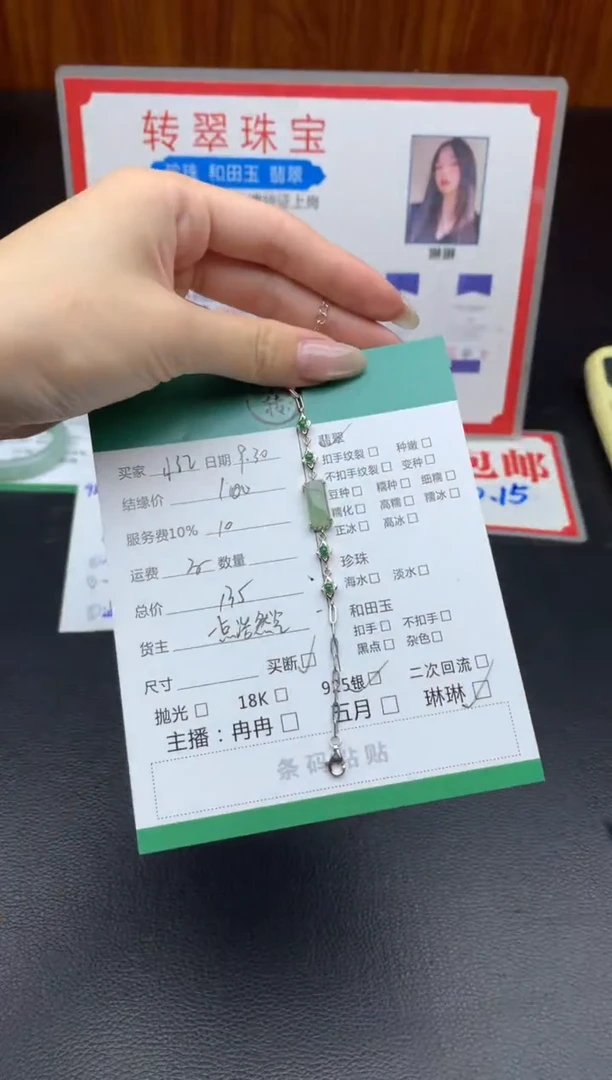 转翠珠宝
和田玉 翡翠
琳琳
包邮
.15
买家 432 日期 9.30
结缘价 100
服务费10% 10
运费 25 数量
总价 135
货主 点浩然空
尺寸 买断☑
抛光□ 18K□ 925银☑ 二次回流□
主播：冉冉□ 五月□ 琳琳☑
翡翠
扣手纹裂□ 种嫩□
不扣手纹裂□ 变种□
豆种□ 糯种□ 细糯□
糯化□ 高糯□ 糯冰□
正冰□ 高冰□
珍珠
海水□ 淡水□
和田玉
扣手□ 不扣手□
黑点□ 杂色□
条码粘贴